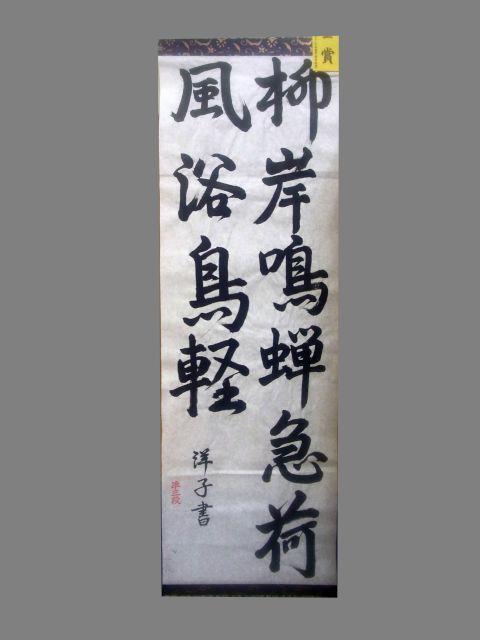 柳岸鳴蝉急荷
風浴鳥軽
洋子書
準三段
賞